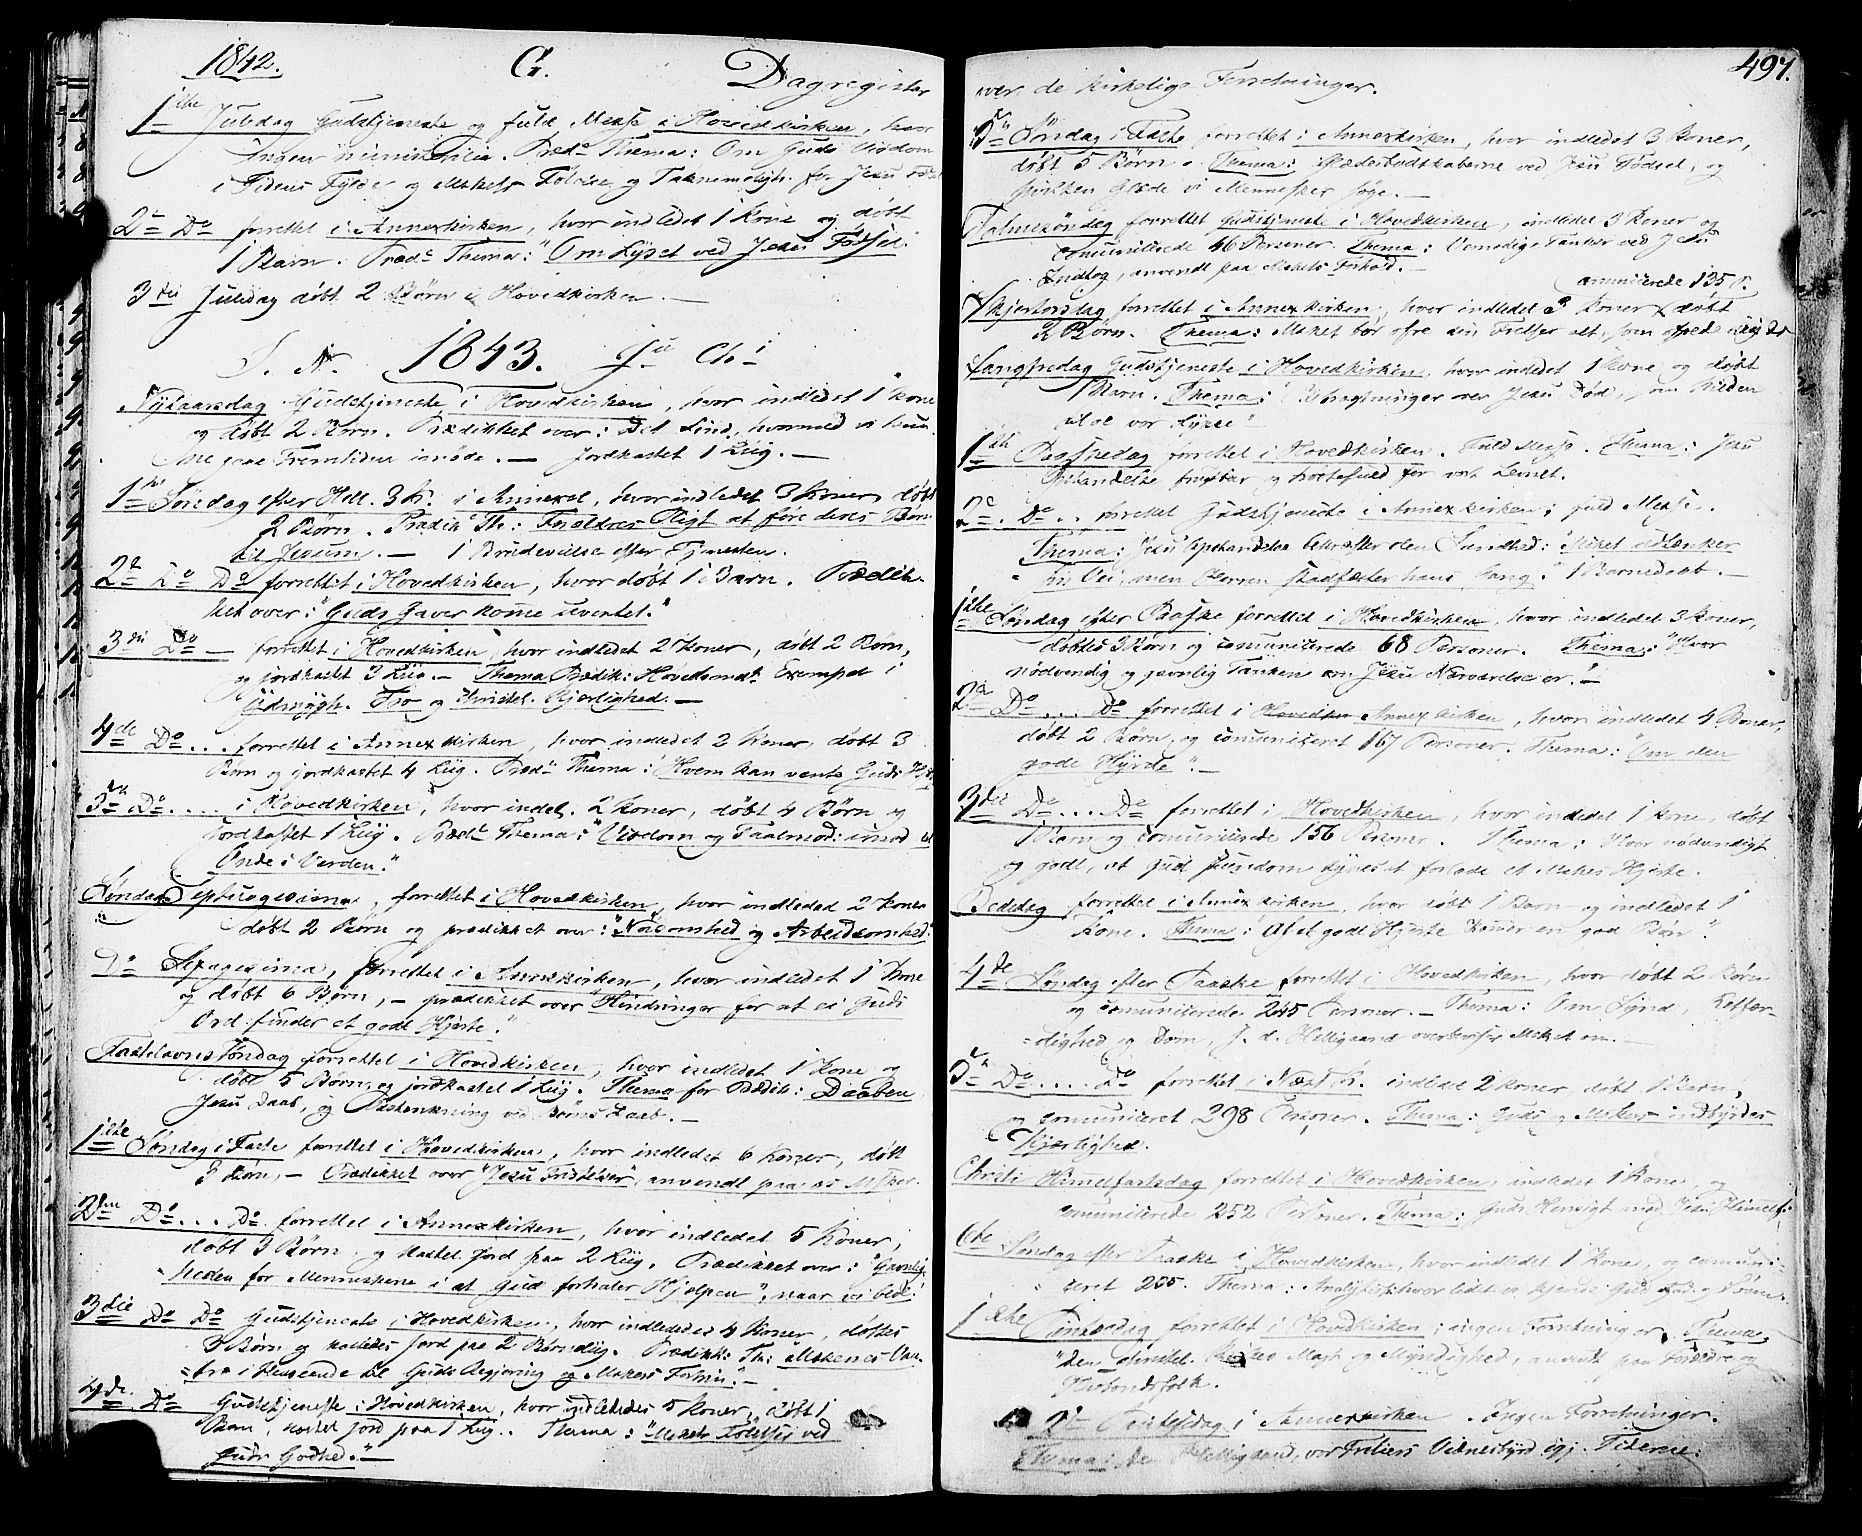 1842. G. Dagregister
1ste Juledag Gudstjeneste og fuld Messe i Hovedkirken, hvor
Ingen ministerialia. Præd. Thema: Om Guds Viisdom
i Tidens Fylde og Mskets Følelse og Taknemeligh. for Jesu
2den Do forrettet i Annexkirken, hvor indledet 1 Kone og døbt
1 Barn. Præd. Thema: "Om Lyset ved Jesu Fødsel.
3die Juledag døbt 2 Børn i Hovedkirken. —
I. N. 1843. Ju Chi
Nytaarsdag Gudstjeneste i Hovedkirken, hvor indledet 1 Kone
og døbt 2 Børn. Prædikket over: Det Sind, hvormed vi kun-
ne gaae Fremtiden imøde. — Jordkastet 1 Liig. —
1ste Søndag efter Hell. 3 K. i Annexet, hvor indledet 3 Koner, døbt
2 Børn. Prædik Th: Forældres Pligt at føre deres Børn
til Jesum. — 1 Brudevielse efter Tjenesten.
2den Do Do forrettet i Hovedkirken, hvor døbt 1 Barn. Prædik-
ket over: "Guds Gaver komme uventet."
3die Do — forrettet i Hovedkirken, hvor indledet 2 Koner, døbt 2 Børn,
og jordkastet 3 Liig. — Thema Prædik: Hovedsmds Exempel i
Ydmygh. Tro og Christel. Kjærlighed. —
4de Do ... forrettet i Annexkirken, hvor indledet 2 Koner, døbt 3
Børn og jordkastet 4 Liig. Præd. Thema: Hvem kan vente Guds
5te Do .... i Hovedkirken, hvor indled. 2 Koner, døbt 4 Børn og
Jordkastet 1 Liig. Præd. Thema: "Viisdom og Taalmod: imod
Onde i Verden."
Søndag Septuagesima, forrettet i Hovedkirken, hvor indleded 2 Koner
døbt 2 Børn og prædikket over: "Nøisomhed og Arbeidsomhed.
Do Sexagesima, forrettet i Annexkirken, hvor indledet 1 Kone
og døbt 6 Børn, — prædikket over "Hindringer for at ei Guds
Ord finder et godt Hjerte."
Fastelavns Søndag forrettet i Hovedkirken, hvor indledet 1 Kone og
døbt 5 Børn, og jordkastet 1 Liig. Thema for Prædik: Daaben
Jesu Daab, og Eftertænkning ved Børns Daab. —
1ste Søndag i Faste forrettet i Hovedkirken, hvor indledet 6 Koner, døbt
3 Børn, — Prædikket over "Jesu Fristelser", anvendt paa os Msker.
2den Do ... Do. forrettet i Annexkirken, hvor indledet 5 Koner,
døbt 3 Børn, og kastet Jord paa 2 Liig. Prædikket over:
heden for Menneskene i at Gud forhaler Hjelpen", naar vi bede.
3die Do Do Gudstjeneste i Hovedkirken, hvor indledes 4 Koner, døbtes
3 Børn og kastedes Jord paa 2 Børneliig. Prædikk: Th: Mskenes
i Henseende til Guds Regjering og Mskers Forhin. —
4de Do Gudstjeneste i Hovedkirken, hvor indledes 5 Koner, døbt 1
Barn, kastet Jord paa 1 Liig. Thema: "Mskets Følelser ved
Guds Godhed." —
497.
over de kirkelige Forretninger.
5te Søndag i Faste forrettet i Annexkirken, hvor indledet 3 Koner,
døbt 5 Børn. Thema: Glædesbudskaberne ved Jesu Fødsel, og
hvilken Glæde vi Mennesker søge. —
Palmesøndag forrettet Gudstjeneste i Hovedkirken, indledet 3 Koner og
comunicerede 46 Personer. Thema: Vemodige Tanker ved Jesu
Indtog, anvendt paa Mskets Forhold. —
comunicerede 135 P.
Skjertorsdag forrettet i Annexkirken, hvor indledet 3 Koner, døbt
2 Børn. Thema: Msket bør ofre sin Frelser alt, som ofrede sig
Langfredag Gudstjeneste i Hovedkirken, hvor indledet 1 Kone og døbt
1 Barn. Thema: "Betragtninger over Jesu Død, som Kilden
til al vor Lykke"
1ste Paaskedag forrettet i Hovedkirken. Fuld Messe. Thema: Jesu
Opstandelse frugtbar og trøstefuld for vort Levnet.
2den Do .. forrettet Gudstjeneste i Annexkirken; fuld Messe.
Thema: Jesu Opstandelse bekræfter den Sandhed: Msket udtænker
sin Vei, men Herren stadfæster hans Gang." 1 Barnedaab. —
1ste Søndag efter Paaske forrettet i Hovedkirken, hvor indledet 3 Koner,
døbtes 3 Børn og comunicerede 68 Personer. Thema: "Hvor
nødvendig og jævnlig Tanken om Jesu Nærværelse er." —
2den Do ... Do forrettet i Annexkirken, hvor indledet 4 Koner,
døbt 2 Børn, og comuniceret 167 Personer. Thema: "Om den
gode Hyrde". —
3die Do ... Do forrettet i Hovedkirken, hvor indledet 1 Kone, døbt
1 Barn og comunicerede 156 Personer. Thema: Hvor nødvendigt
og godt, at Gud stundom synes at forlade et Mskes Hjerte.
Bededag forrettet i Annexkirken, hvor døbt 1 Barn og indledet 1
Kone. Thema: "Af et godt Hjerte kommer en god Bøn".
4de Søndag efter Paaske forrettet i Hovedkirken, hvor døbt 2 Børn
og comunicerede 245 Personer. — Thema: Om Synd, Retfær-
dighed og Dom, d. Helligaand overbeviser Msket om. —
5te Do .... Do forrettet i Næst K. indledt 2 Koner døbt 1 Barn,
og comuniceret 298 Personer. Thema: Guds og Mskers indbyrdes
Kjærlighed.
Christi Himelfartsdag forrettet i Hovedkirken, indledet 1 Kone, og
comunicerede 252 Personer. Thema: Guds Hensigt med Jesu Himmelf.
6te Søndag efter Paaske i Hovedkirken, hvor indledet 1 Kone, og comuni-
ceret 255. Thema: hvor lidet vi kjende Gud Fad. og Sønnen.
1ste Pintsedag forrettet i Hovedkirken; ingen Forretninger. Thema,
"Den christel. Magt og Myndighed, anvendt paa Forældre og
Husbondsfolk.
2den Pintsedag i Annexkirken. Ingen Forretninger.
Thema: Den Helligaand, vor Frelsers Vidnesbyrd igj. Tiderne.